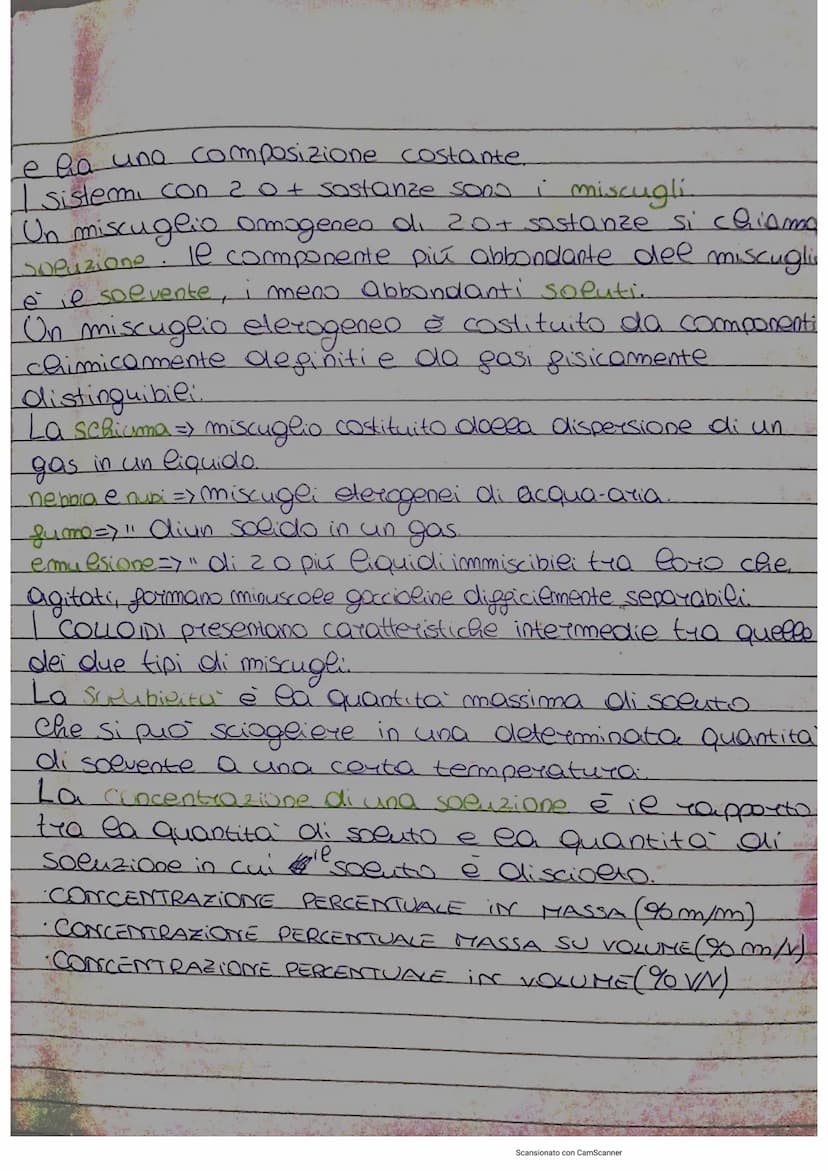 e ha una composizione costante.
I sistemi con 2 o + sostanze sono i miscugli.
Un miscuglio omogeneo di 2 o + sostanze si chiama
soluzione. Il componente più abbondante del miscugli
è il solvente, i meno abbondanti soluti.
Un miscuglio eterogeneo è costituito da componenti
chimicamente definiti e da fasi fisicamente
distinguibili.
La schiuma => miscuglio costituito dalla dispersione di un
gas in un liquido.
nebbia e nubi => miscugli eterogenei di acqua-aria.
fumo => " di un solido in un gas.
emulsione => " di 2 o più liquidi immiscibili tra loro che,
agitati, formano minuscole goccioline difficilmente separabili.
I COLLOIDI presentano caratteristiche intermedie tra quelle
dei due tipi di miscugli.
La solubilità è la quantità massima di soluto
che si può sciogliere in una determinata quantità
di solvente a una certa temperatura.
La concentrazione di una soluzione è il rapporto
tra la quantità di soluto e la quantità di
soluzione in cui il soluto è disciolto.
· CONCENTRAZIONE PERCENTUALE IN MASSA (% m/m)
· CONCENTRAZIONE PERCENTUALE MASSA SU VOLUME (% m/V)
· CONCENTRAZIONE PERCENTUALE IN VOLUME (% V/V)
Scansionato con CamScanner